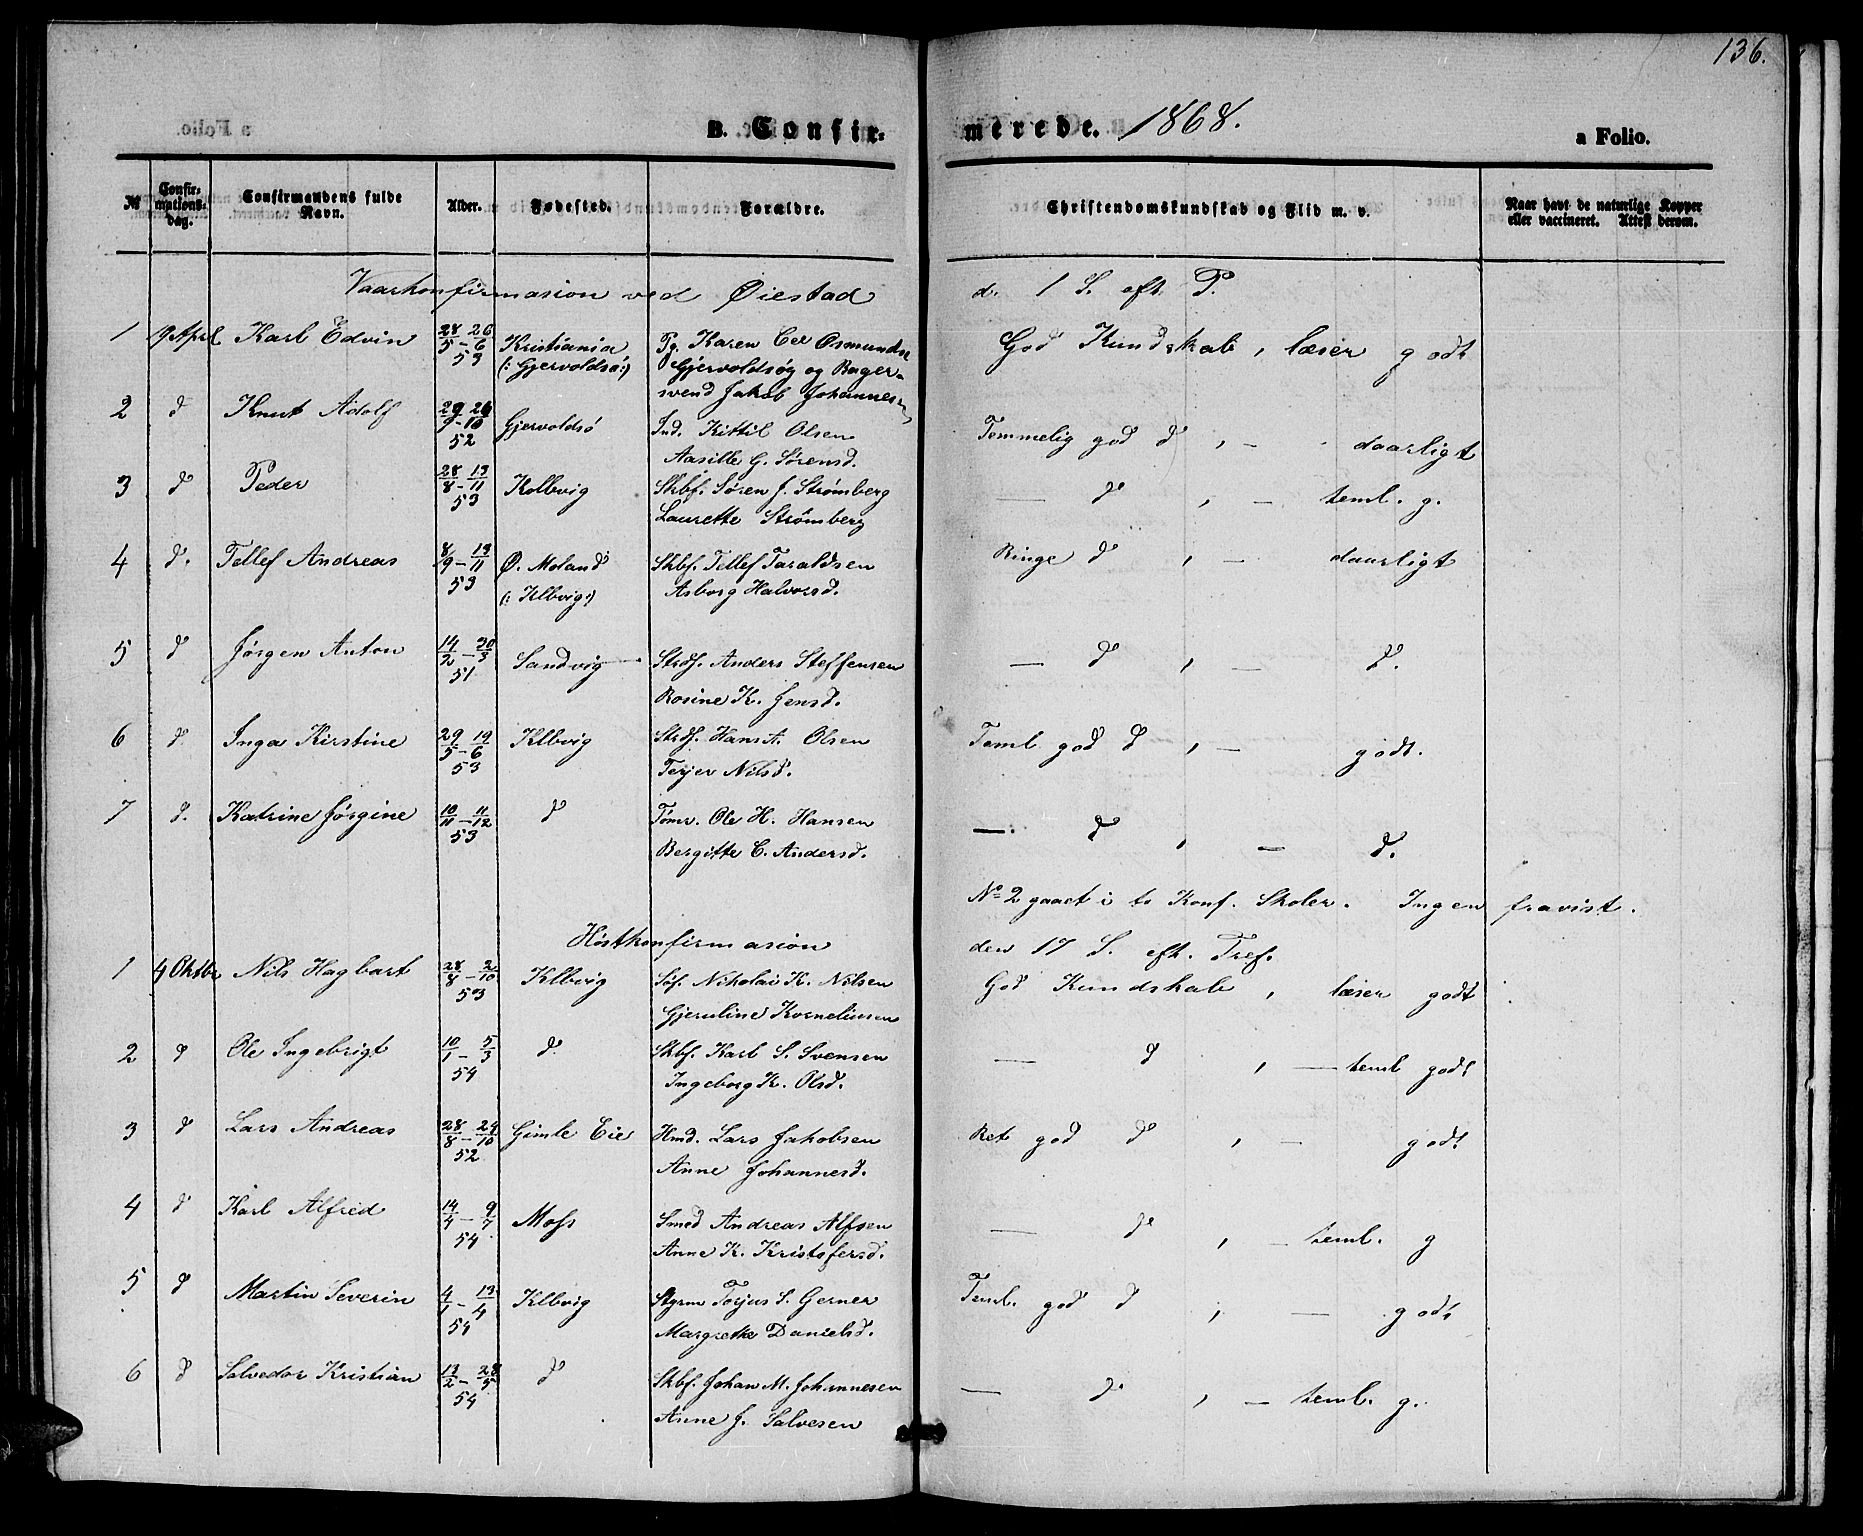 136.
B. Confir-
merede. 1868.
a Folio.
№
Confir-
mations-
dag.
Confirmandens fulde
Navn.
Alder.
Fødested.
Forældre.
Christendomskundskab og Flid m. v.
Naar havt de naturlige Kopper
eller vaccineret. Attest derom.
Vaarkonfirmasion ved Øiestad d. 1 S. eft. P.
1 19 April Karl Edvin 28/5 - 26/6 53 Kristiania
(: Gjervoldsø:)
Pg. Karen Osmundsd
Gjervoldsøy og Bager-
svend Jakob Johannesen
God Kundskab, læser godt
2 d Knut Adolf 29/9 - 26/10 52 Gjervoldsø
Ind. Kittil Olsen
Aasille G. Sørensd.
Temmelig god d, - daarligt
3 d Peder 28/8 - 13/11 53 Kolbvig
Skbf. Søren J. Strømberg
Laurette Strømberg
— d, - teml. g.
4 d. Tellef Andreas 8/9 - 13/11 53 Ø. Moland
(: Klbvig:)
Skbf. Tellef Taraldsen
Asborg Halvorsd.
Ringe d, - daarligt
5 d Jørgen Anton 14/2 - 30/3 51 Sandvig
Strdf. Anders Steffensen
Rosine K. Jensd.
— d, - d.
6 d. Inga Kirstine 29/5 - 19/6 53 Klbvig
Strdf. Hans A. Olsen
Terjer Nilsd.
Teml god d, - godt.
7 d. Katrine Jørgine 10/11 - 11/12 53 d
Tømr. Ole H. Hansen
Bergitte C. Andersd.
—. d, - d.
№ 2 gaaet i to Konf. Skoler. Ingen fravist.
Høstkonfirmasion den 17 S. eft. Tref.
1 4 Oktbr Nils Hagbart 28/8 - 2/10 53 Klbvig
Søf. Nikolai K. Nilsen
Gjeruline Kornelinsen
God Kundskab, læser godt
2 d Ole Ingebrigt 10/1 - 5/3 54 d.
Skbf. Karl S. Svensen
Ingeborg K. Olsd.
— d, — teml godt
3 d Lars Andreas 28/8 - 24/10 52 Gimle Eie
Hmd. Lars Jakobsen
Anne Johannesd.
Ret god d, - godt
4 d Karl Alfred 14/4 - 9/7 54 Moss
Smed Andreas Alfsen
Anne K. Kristofersd.
— d, - teml. g
5 d Martin Severin 4/1 - 13/4 54 Klbvig
Styrm Torjus S. Gerner
Margrethe Danielsd.
Teml. god d, — godt
6 d Salvedor Kristian 13/2 - 28/5 54 d
Skbf. Johan M. Johannesen
Anne J. Salvesen
— d, - teml. g.